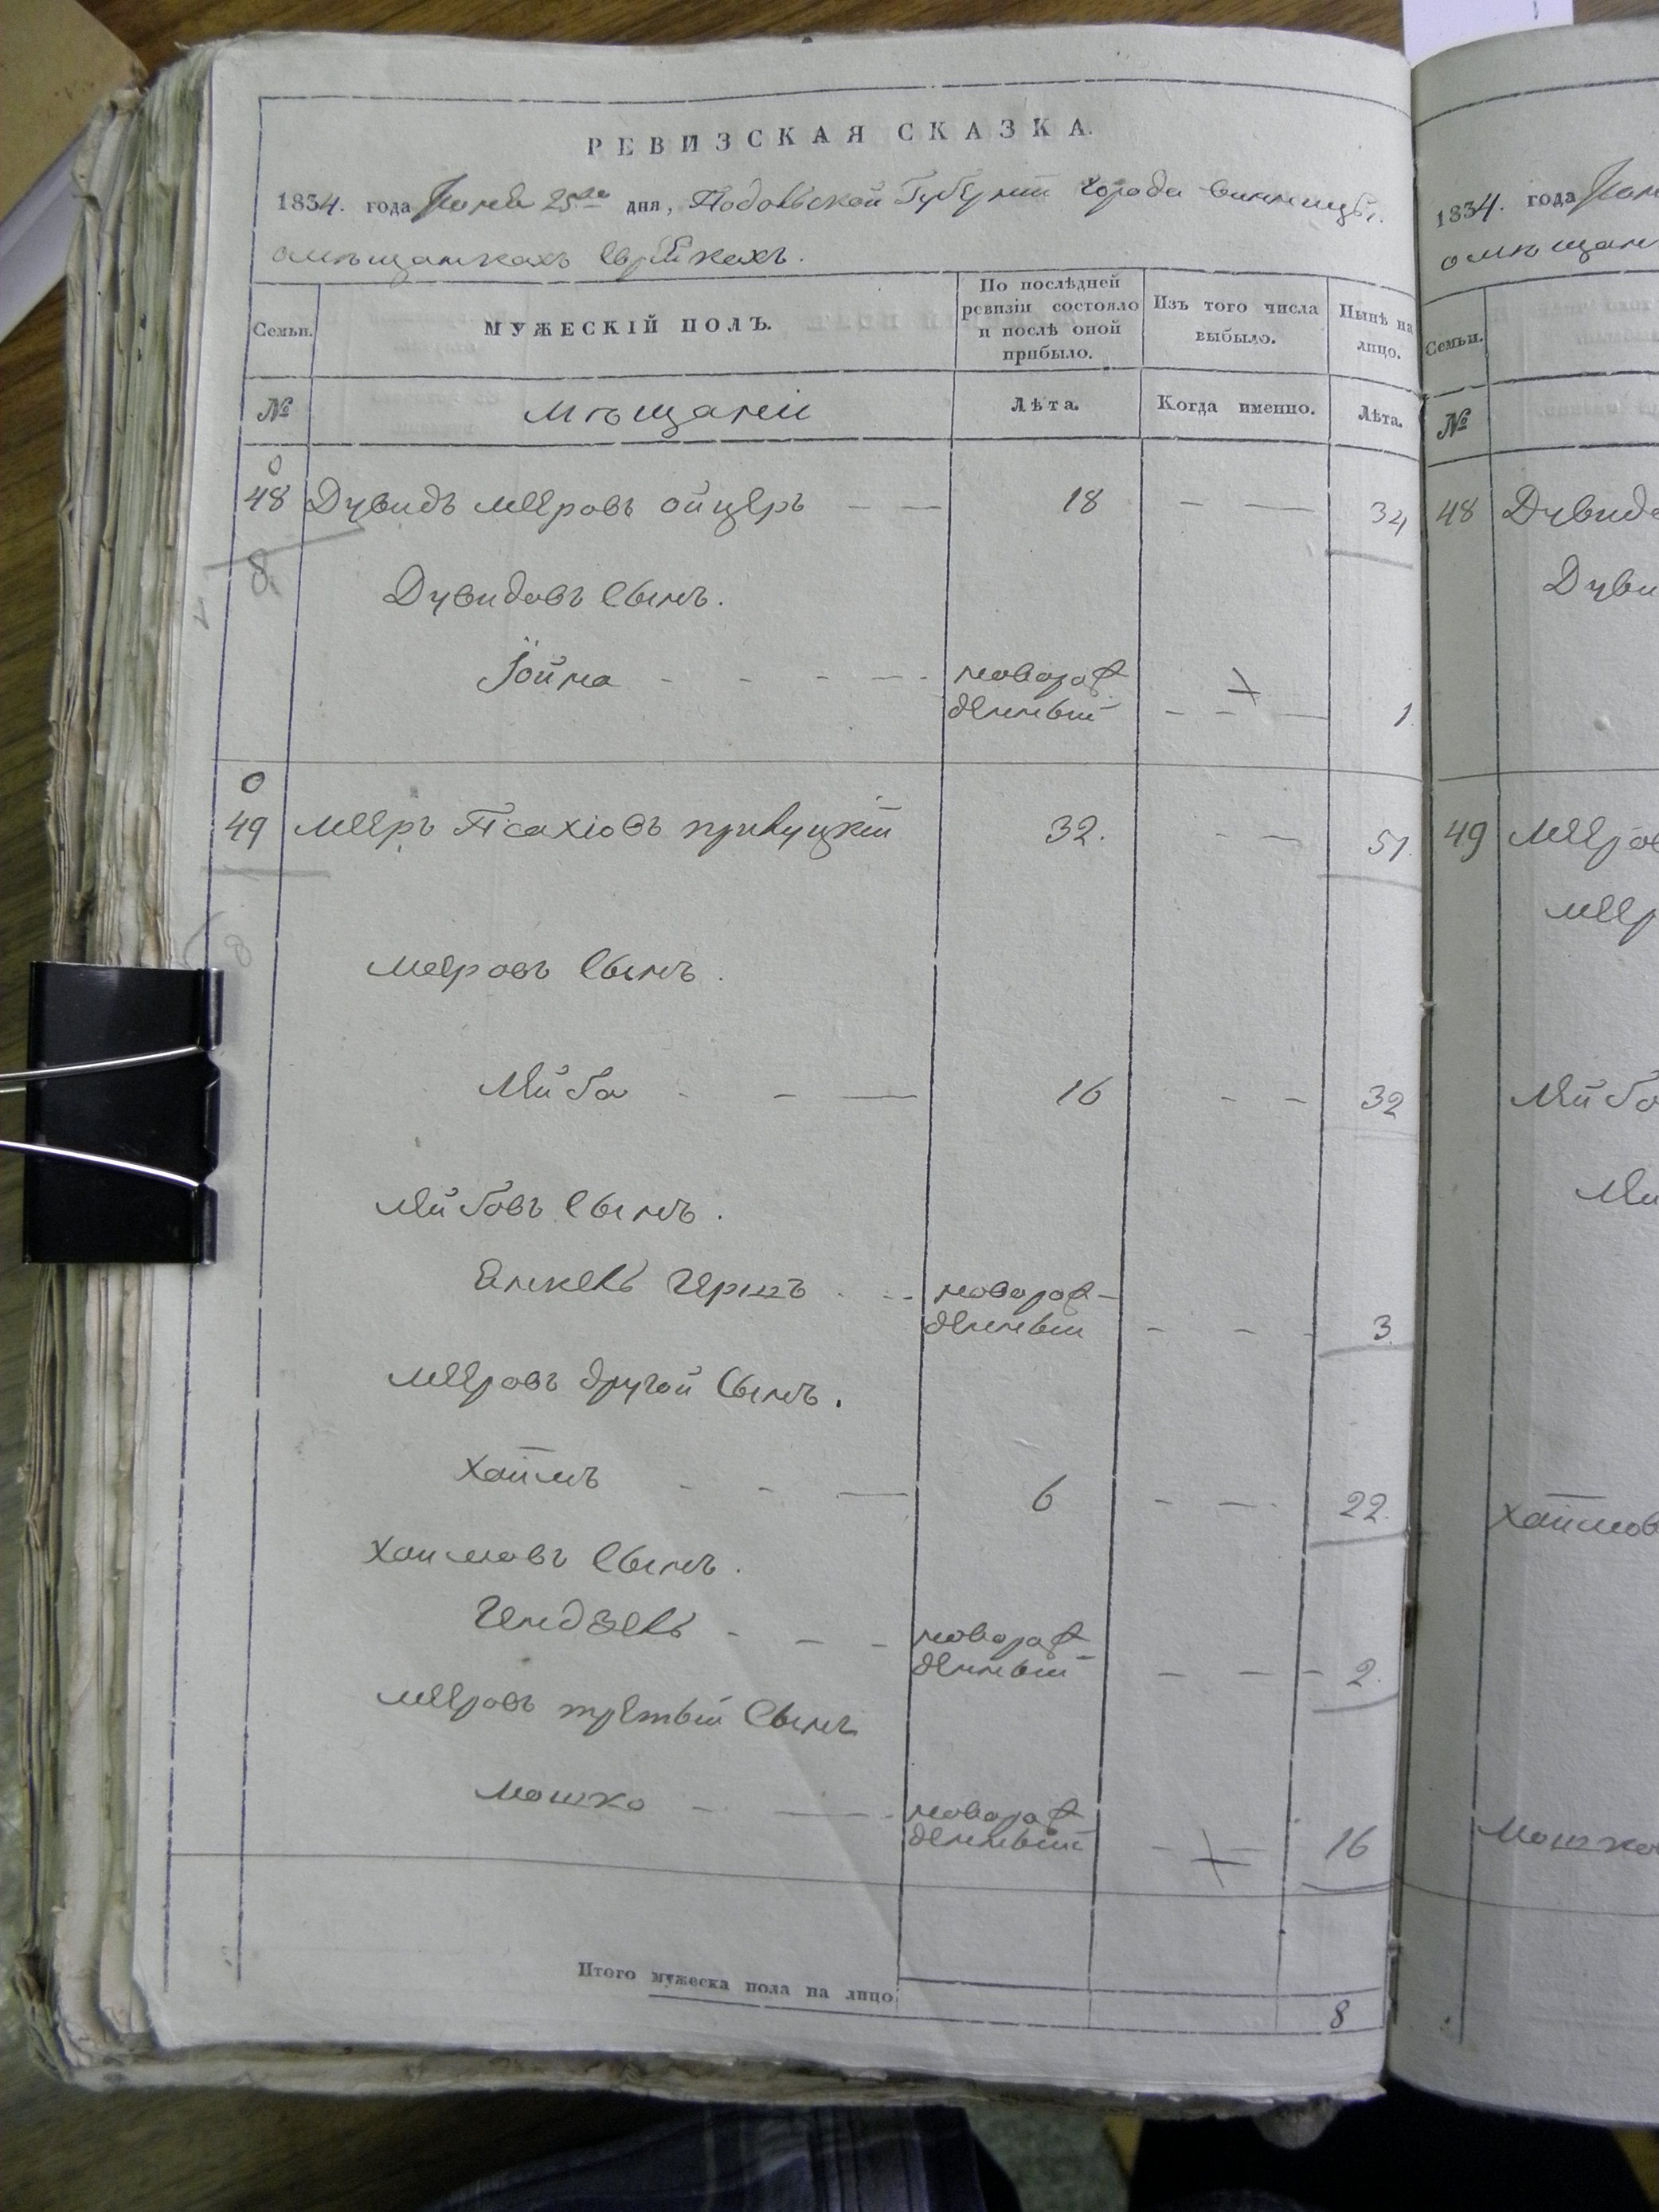 РЕВИЗСКАЯ СКАЗКА.
1834. года Июня 25го дня, Подольской Губернии Города Винницы,
о мѣщанкахъ Еврейкахъ.
Семьи.
МУЖЕСКІЙ ПОЛЪ.
По послѣдней ревизіи состояло и послѣ оной прибыло.
Изъ того числа выбыло.
Нынѣ на лицо.
№ мѣщане Лѣта. Когда именно. Лѣта.
0
48 Дувидъ Мееровъ Ойцеръ — — 18 — — 34
8
Дувидовъ Сынъ.
Іойна - - - — новорож
денный - - — 1
0
49 Мееръ Псахіовъ прилуцкій 32. - — 51.
8
Мееровъ Сынъ.
Лейба - - — 16 - - 32
Лейбовъ Сынъ.
Янкель Гершъ - - новорож-
денный - - - 3
Мееровъ другой Сынъ.
Хаимъ - - — 6 - — 22.
Хаимовъ Сынъ.
новорож
денный — — — 2.
Мееровъ третьий Сынъ
Мошко - — - новорож
денный - — 16
Итого мужеска пола на лицо.
8
1834. года
о мѣщан
Семьи.
№
48 Дувидо
Дуви
49 Мееров
Меер
Лейбо
Ле
Хаимов
Мошко